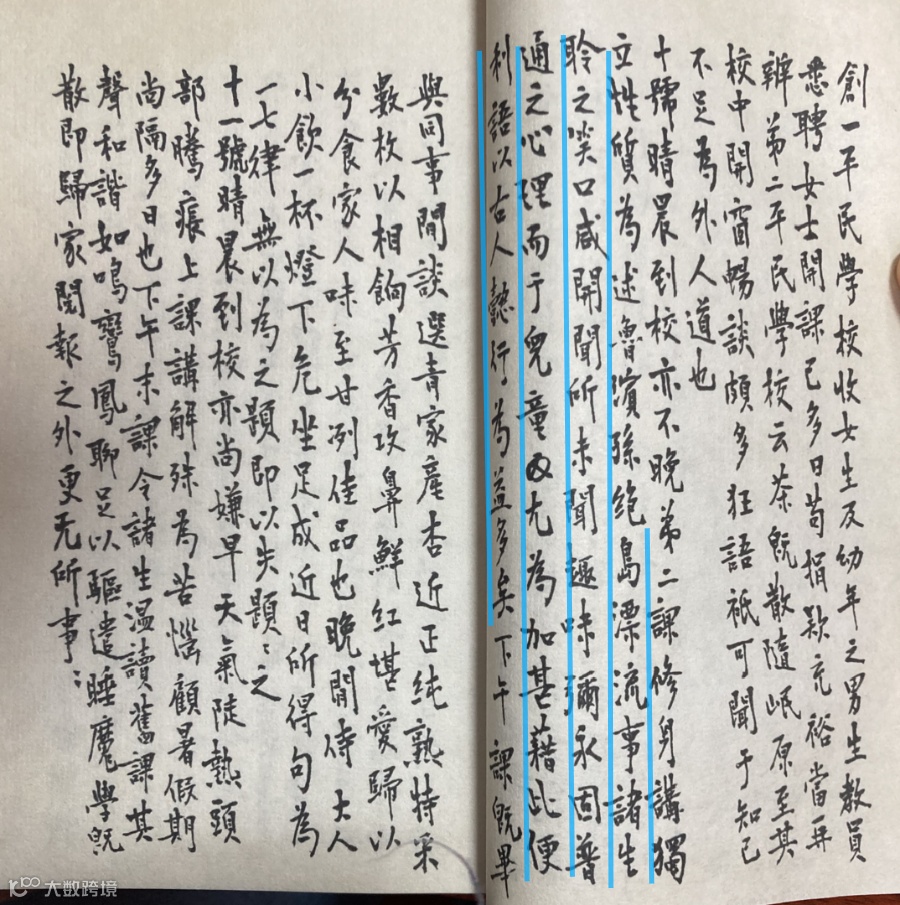 創一平民學校收女生及幼年之男生教員
悉聘女士開課已多日苟捐款充裕當再
辦第二平民學校云茶既散隨岷原至其
校中開窗暢談頗多狂語祇可聞于知己
不足為外人道也
十號晴晨到校亦不晚第二課修身講獨
立性質為述魯濱孫絶島漂流事諸生
聆之笑口咸開聞所未聞趣味彌永固普
通之心理而于兒童又尤為加甚藉此便
利語以古人懿行為益多矣下午課既畢
與同事閒談選青家產杏近正純熟特采
數枚以相餉芳香攻鼻鮮紅堪愛歸以
分食家人味至甘冽佳品也晚間侍大人
小飲一杯燈下危坐足成近日所得句為
一七律無以為之題即以失題:之
十一號晴晨到校亦尚嫌早天氣陡熱頭
部騰痕上課講解殊為苦惱顧暑假期
尚隔多日也下午末課令諸生溫讀舊課其
聲和諧如鳴鸞鳳聊足以驅遣睡魔學既
散即歸家閱報之外更无所事:
大数跨境